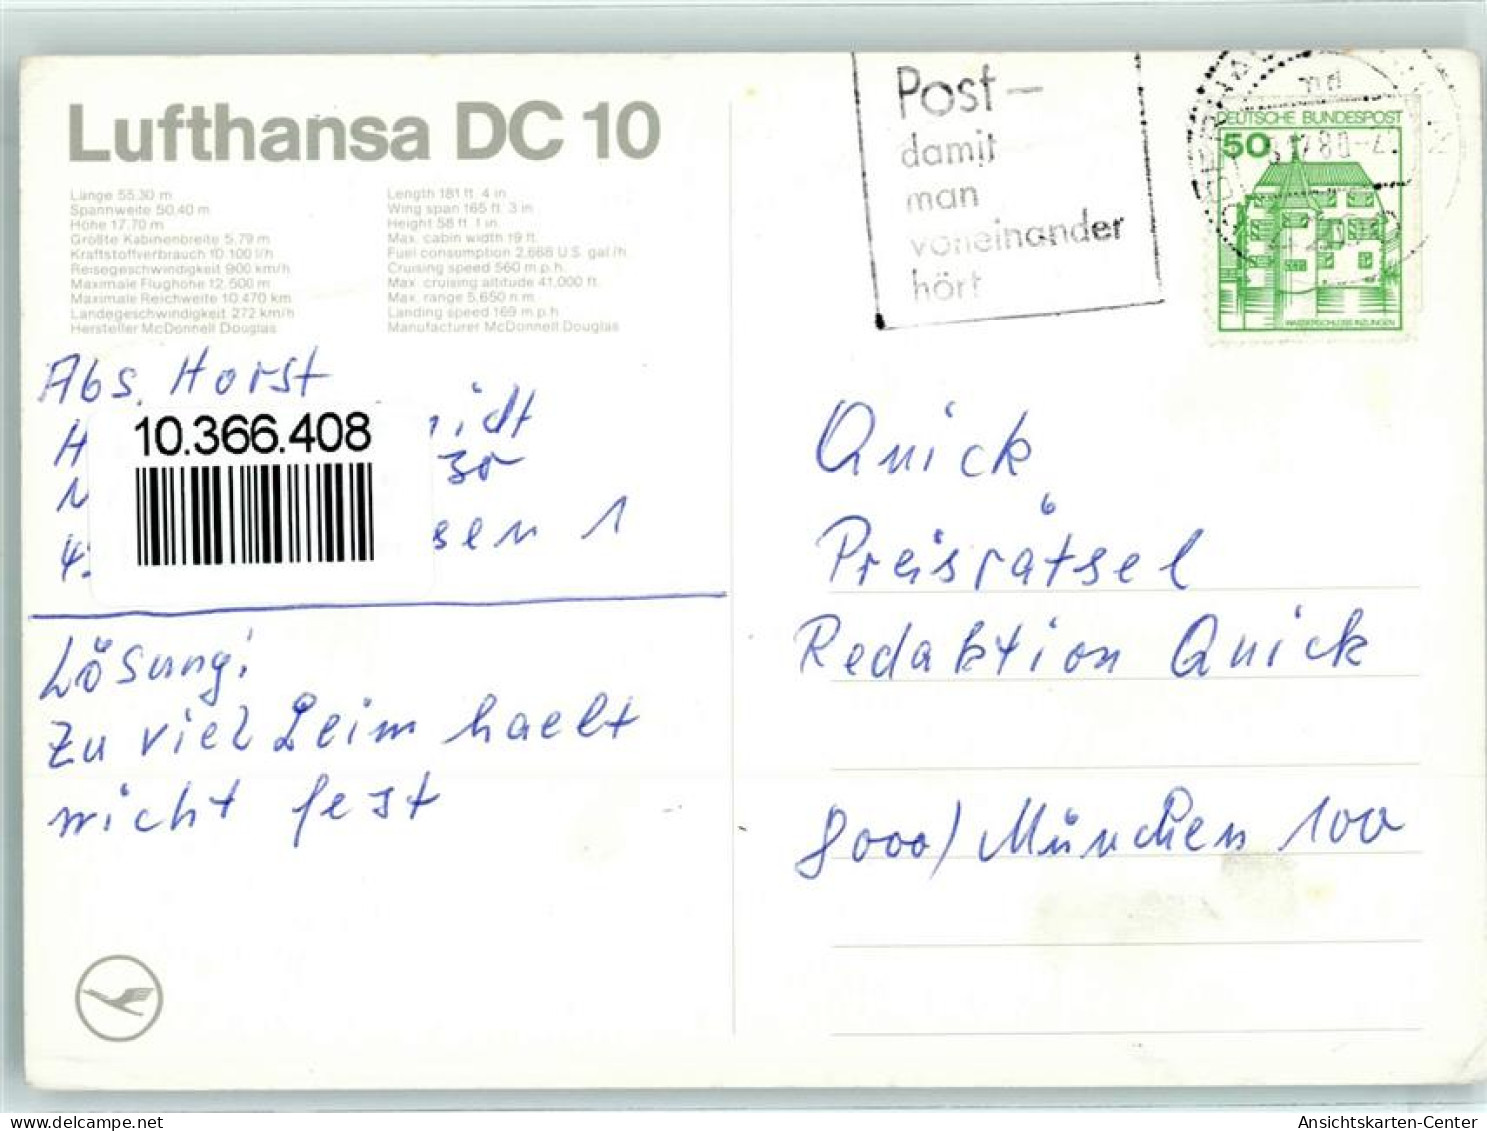 Lufthansa DC 10
Länge 55.30 m
Spannweite 50.40 m
Höhe 17.70 m
Größte Kabinenbreite 5.79 m
Kraftstoffverbrauch 10 100 l/h
Reisegeschwindigkeit 900 km/h
Maximale Flughöhe 12.500 m
Maximale Reichweite 10.470 km
Landegeschwindigkeit 272 km/h
Hersteller McDonnell Douglas
Length 181 ft. 4 in.
Wing span 165 ft. 3 in.
Height 58 ft. 1 in.
Max. cabin width 19 ft.
Fuel consumption 2,668 U.S. gal/h
Cruising speed 560 m.p.h.
Max. cruising altitude 41,000 ft.
Max. range 5,650 n.m.
Landing speed 169 m.p.h.
Manufacturer McDonnell Douglas
Post –
damit
man
voneinander
hört
DEUTSCHE BUNDESPOST
50
WASSERSCHLOSS INZLINGEN
Abs. Horst
10.366.408
30
sen 1
Lösung:
Zu viel Leim haelt
nicht fest
Quick
Preisrätsel
Redaktion Quick
8000) München 100
Ansichtskarten-Center